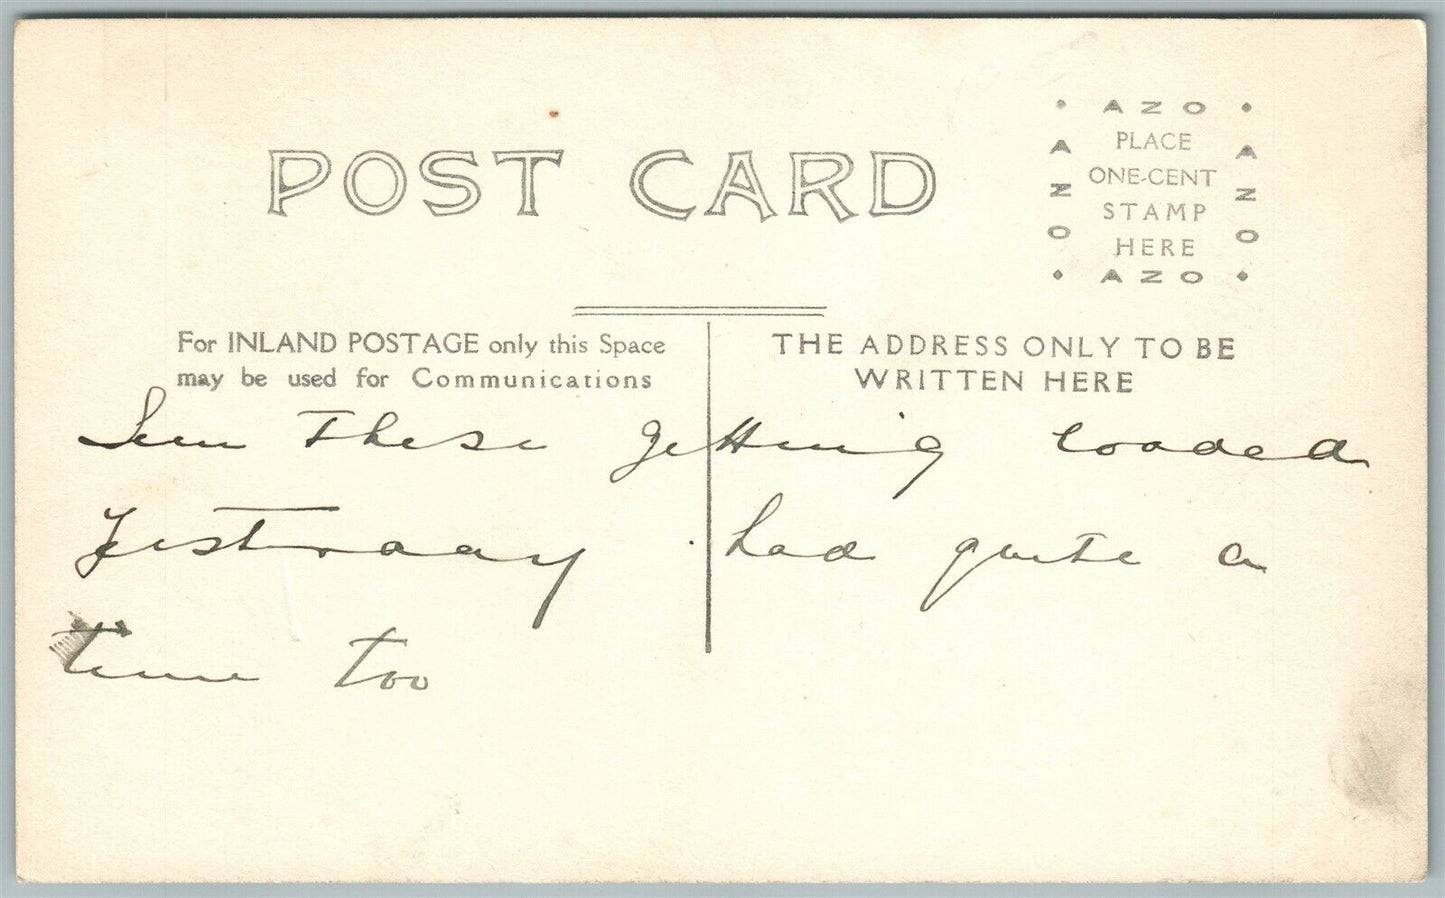 POST CARD
AZO
AZO
AZO
AZO
PLACE
ONE-CENT
STAMP
HERE
For INLAND POSTAGE only this Space
may be used for Communications
THE ADDRESS ONLY TO BE
WRITTEN HERE
Seen These getting loaded
Yesterday had quite a
time too